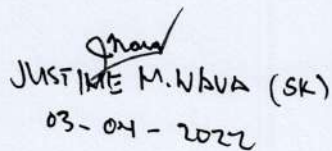 JUSTINE M. NAVA (SK)
03-04-2022